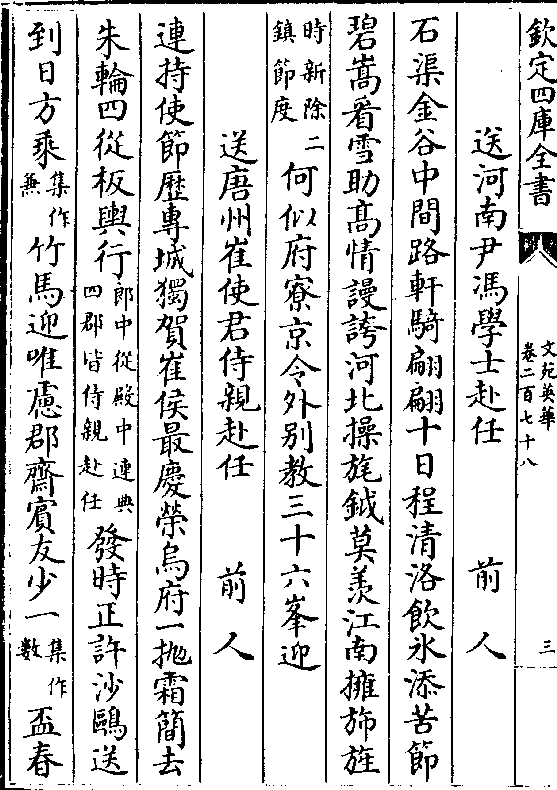 欽定四庫全書
文苑英華
卷二百七十八
三
送河南尹馮學士赴任 前人
石渠金谷中間路軒騎翩翩十日程清洛飲氷添苦節
碧嵩看雪助髙情謾誇河北操旄鉞莫羨江南擁斾旌
時新除二
鎮節度
何似府寮京令外别教三十六峯迎
送唐州崔使君侍親赴任 前人
連持使節歴專城獨賀崔侯最慶榮烏府一抛霜簡去
朱輪四從板輿行
郎中從殿中連典
四郡皆侍親赴任
發時正許沙鷗送
到日方乘
集作
兼
竹馬迎唯慮郡齋賓友少一
集作
數
盃春